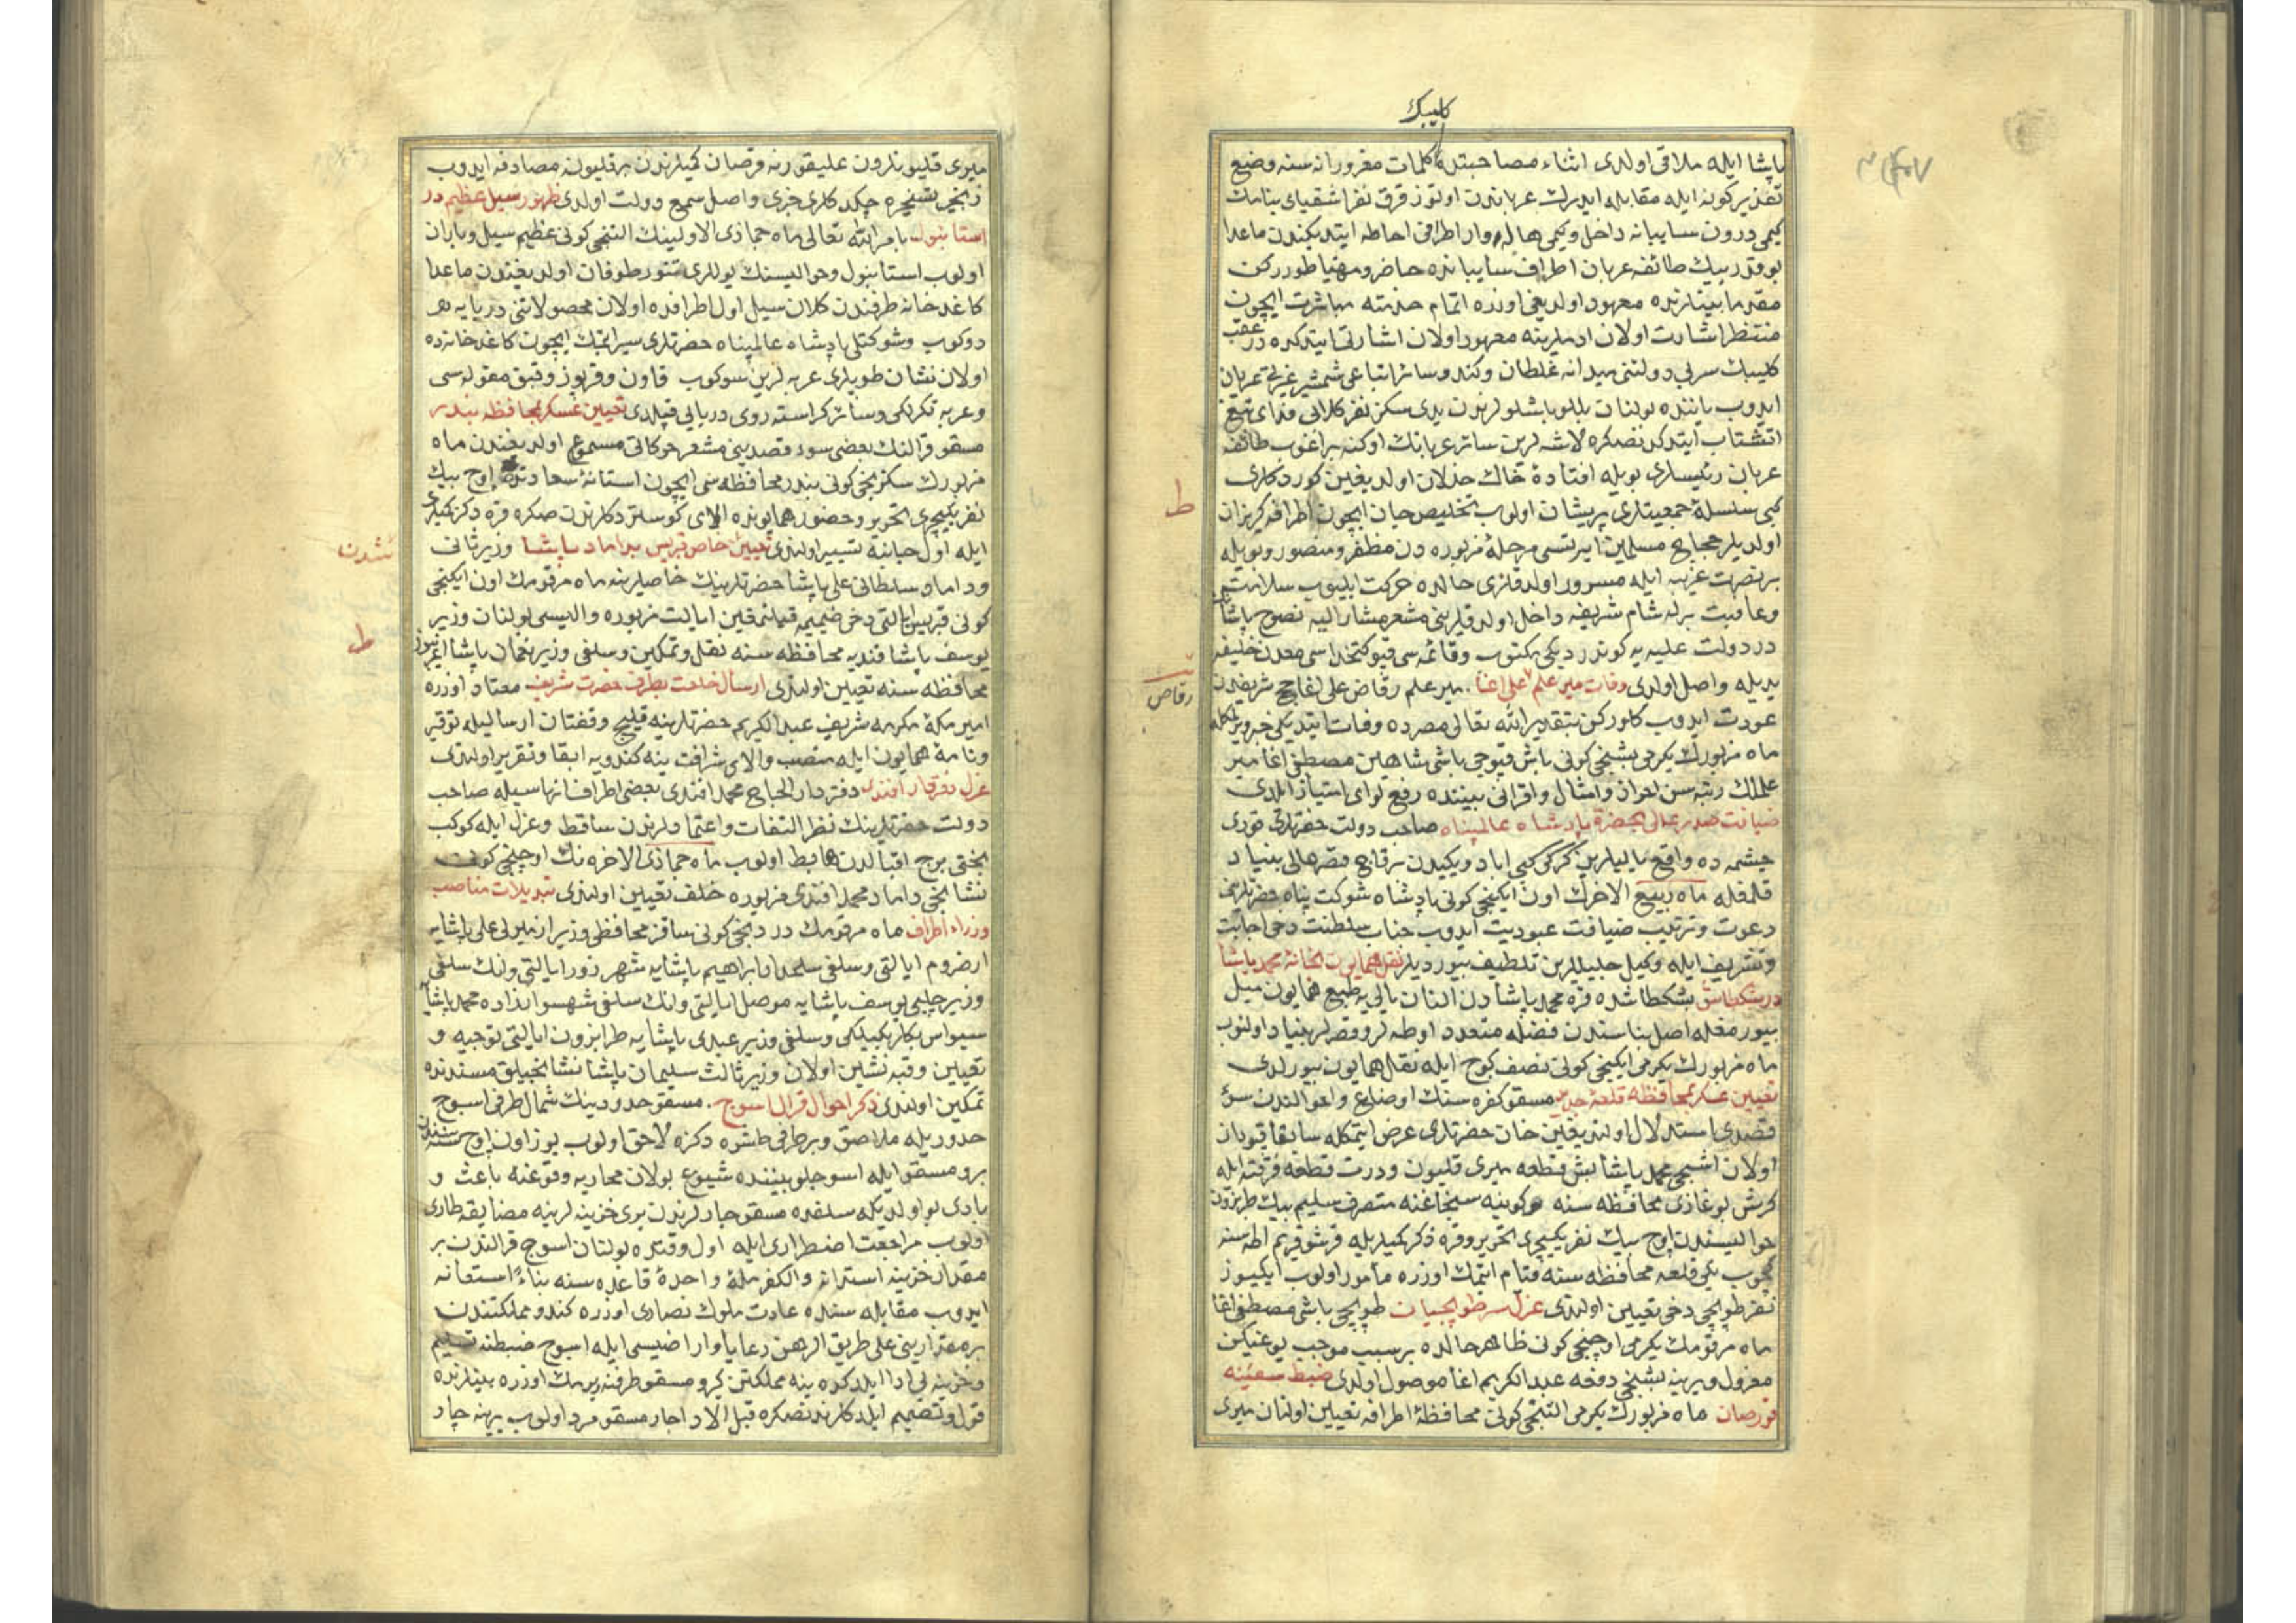 كليبك
پاشا ايله ملاقی اولدی اثناء مصاحبتده كلمات مغرورانه سنه وضع
تقدير كونه ايله مقابله ايدرك عرباندن اوتوز قرق نفر اشقيای بنامك
كيمی درون سايبانه داخل وكيمی هاله وار اطرافن احاطه ايتديكندن ماعدا
بو قدر بيك طائفه عربان اطراف سايبانده حاضر ومهيا طوررکن
مقدما بينلرنده معهود اولديغی اوزره اتمام خدمته مباشرت ايچون
منتظر اشارت اولان ادملرينه معهود اولان اشارتی ايتدكده در عقب
كليبك سر بی دولتنی ميدانه غلطان وكندو سائر اتباعی شمشير غزاتی عريان
ايدوب ياننده بولنان بللو باشلولرندن يدی سكز نفر كلابی فدای تيغ
اتشتاب ايتدكدنصكره لاشه لرين سائر عربانك اوكنه براغوب طائفه
عربان رئيسلری بويله افتادهٔ خاك خذلان اولديغين كوردكلری
كبی سلسلهٔ جمعيتلری پريشان اولوب تخليص جان ايچون اطرافه كريزان
اولديلر حجاج مسلمين ايرتسی مرحلهٔ مزبوره دن مظفر ومنصور وبويله
بر نصرت غريبه ايله مسرور اولدقلری حالده حركت ايليوب سلامت
وعافيت برله شام شريفه داخل اولدقلرينی مشعر مشار اليه نصوح پاشا
در دولت عليه يه كوندرديكی مكتوب وقائمه سی قپو كتخداسی معدن خليفه
يديله واصل اولدی وفات مير علم علی اغا . مير علم رقاص علی اغا حج شريفدن
عودت ايدوب كلوركن بتقدير الله تعالی مصرده وفات ايتديكی خبر ويرلمكله
ماه مزبورك يكرمی بشنجی كونی باش قپوجی باشی شاهين مصطفی اغا مير
علملك رتبه سن احراز وامثال واقرانی بيننده رفع لوای امتياز ايلدی
ضيافت صدر عالی بحضرة پادشاه عالمپناه صاحب دولت حضرتلری قوری
چشمه ده واقع ياليلرين كركی كبی اباد ويكيدن برقاچ قصر عالی بنياد
قلمغله ماه ربيع الاخرك اون ايكنجی كونی پادشاه شوكت پناه حضرتلرينی
دعوت وترتيب ضيافت عبوديت ايدوب جناب سلطنت دخی اجابت
وتشريف ايله وكيل جليللرين تلطيف بيورديلر نقل همايون بخانهٔ محمد پاشا
در بشكطاش بشكطاشده قره محمد پاشادن النان يالی يه طبع همايون ميل
بيورمغله اصل بناسندن فضله متعدد اوطه لر وقصرلر بنياد اولنوب
ماه مزبورك يكرمی ايكنجی كونی نصف كوج ايله نقل همايون بيورلدی
تعيين عسكر بمحافظه قلعهٔ جديد مسقو كفره سنك اوضاع واحوالندن سوء
قصدی استدلال اولنديغين خان حضرتلری عرض ايتمكله سابقا قپودان
اولان اشجی محمد پاشا بش قطعه ميری قليون ودرت قطعه فرقته ايله
كرش بوغازی محافظه سنه وكونيه سنجاغنه متصرف سليم بيك طربزون
حواليسندن اوچ بيك نفر يكيچری تحرير وقره دكز كميلريله قرشو قريم اطه سنه
كچوب يكی قلعه محافظه سنه قيام ايتمك اوزره مامور اولوب ايكيوز
نفر طوپجی دخی تعيين اولندی عزل سر طوپجيان طوپجی باشی مصطفی اغا
ماه مرقومك يكرمی اوچنجی كونی ظاهر حالده بر سبب موجب يوغيكن
معزول ويرينه بشنجی دفعه عبد الكريم اغا موصول اولدی ضبط سفينه
قورصان ماه مزبورك يكرمی التنجی كونی محافظهٔ اطرافه تعيين اولنان ميری
ط
رقاص
ميری قليونلردن عليقورنه قورصان كميلرندن بر قليونه مصادفه ايدوب
زنجير تسخيره چكدكلری خبری واصل سمع دولت اولدی ظهور سيل عظيم در
استانبول بامر الله تعالی ماه جماذی الاولينك التنجی كونی عظيم سيل وباران
اولوب استانبول وحواليسنك يوللری تنور طوفان اولديغندن ماعدا
كاغدخانه طرفندن كلان سيل اول اطرافده اولان محصولاتنی دريايه هر
دوكوب وشوكتلی پادشاه عالمپناه حضرتلری سير ايتمك ايچون كاغدخانه ده
اولان نشان طوپلری عربه لرين سوكوب قاون وقرپوز وقبق مقوله سی
وعربه تكرلكی وسائر كراسته روی دريايی قپلدی تعيين عسكر بمحافظه بندر
مسقو قرالنك بعضی سوء قصدينی مشعر حركاتی مسموع اولديغندن ماه
مزبورك سكزنجی كونی بندر محافظه سی ايچون استانهٔ سعادتدن اوچ بيك
نفر يكيچری تحرير وحضور همايونده الای كوستردكلرندن صكره قره دكز كميلری
ايله اول جانبه تسيير اولندی تعيين خاص قبريس بداماد پاشا وزير ثانی
وداماد سلطانی علی پاشا حضرتلرينك خاصلرينه ماه مرقومك اون ايكنجی
كونی قبريس ايالتی دخی ضميمه قيلنمقين ايالت مزبوره واليسی بولنان وزير
يوسف پاشا قنديه محافظه سنه نقل وتمكين وسلفی وزير نعمان پاشا اغريبوز
محافظه سنه تعيين اولندی ارسال خلعت بطرف حضرت شريف معتاد اوزره
امير مكهٔ مكرمه شريف عبد الكريم حضرتلرينه قليج وقفتان ارساليله توقير
ونامهٔ همايون ايله منصب والای شرافت ينه كندويه ابقا وتقرير اولندی
عزل دفتردار افندی دفتردار الحاج محمد افندی بعضی اطراف انهاسيله صاحب
دولت حضرتلرينك نظر التفات واعتمادلرندن ساقط وعزل ايله كوكب
بختی برج اقبالدن هابط اولوب ماه جماذی الاخره نك اوچنجی كونی
نشانجی داماد محمد افندی مزبوره خلف تعيين اولندی تبديلات مناصب
وزراء اطراف ماه مرقومك دردنجی كونی ساقز محافظی وزير ازميرلی علی پاشايه
ارضروم ايالتی وسلفی سلحدار ابراهيم پاشايه شهرزور ايالتی وانك سلفی
وزير چلبی يوسف پاشايه موصل ايالتی وانك سلفی شهسوارزاده محمد پاشايه
سيواس بكلربكيلكی وسلفی وزير عبدی پاشايه طرابزون ايالتی توجيه و
تعيين وقبه نشين اولان وزير ثالث سليمان پاشا نشانجيلق مسندنده
تمكين اولندی ذكر احوال قرال اسوج . مسقو حدودينك شمال طرفی اسوج
حدوديله ملاصق وبر طرفی طشره دكزه لاحق اولوب يوز اون اوچ سنه سندن
برو مسقو ايله اسوجلو بيننده شيوع بولان محاربه وقوعنه باعث و
بادی بو اولديكه سلفده مسقو چارلرندن بری خزينه لرينه مضايقه طاری
اولوب مراجعت اضطراری ايله اول وقتده بولنان اسوج قرالندن بر
مقدار خزينه استدانه والكفر ملة واحدة قاعده سنه بناءً استعانه
ايدوب مقابله سنده عادت ملوك نصاری اوزره كندو مملكتندن
بر مقدارينی علی طريق الرهن رعايا واراضيسی ايله اسوج ضبطنه تسليم
وخزينه نی ادا ايلدكده ينه مملكتن كرو مسقو طرفنه ويرمك اوزره بينلرنده
قول وتصميم ايلدكلرندنصكره قبل الادا چار مسقو مرد اولوب يرينه چار
ثندن
ط